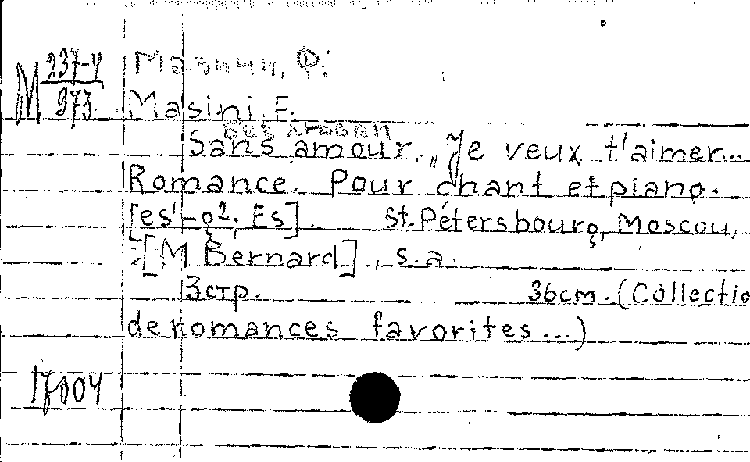 М 237-4/273
Мазини, Ф.
Masini, F.
Без любви
Sans amour. „Je veux t'aimer...
Romance. Pour chant et piano.
[es¹-g². Es]. St. Pétersbourg, Moscou,
[M. Bernard], s.a.
3 стр. 36cm. (Collectio
de romances favorites...)